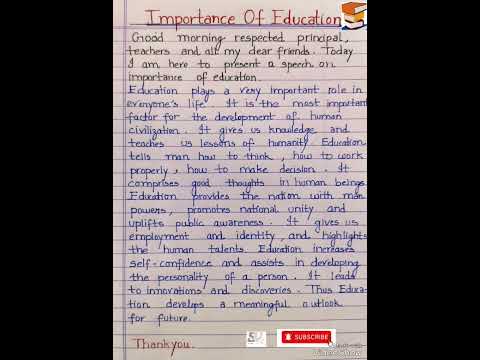 Importance Of Education
Good morning respected principal,
teachers and all my dear friends. Today
I am here to present a speech on
importance of education.
Education plays a very important role in
everyone's life. It is the most important
factor for the development of human
civilization. It gives us knowledge and
teaches us lessons of humanity. Education
tells man how to think, how to work
properly, how to make decision. It
comprises good thoughts in human beings.
Education provides the nation with man
powers, promotes national unity and
uplifts public awareness. It gives us
employment and identity, and highlights
the human talents. Education increases
self-confidence and assists in developing
the personality of a person. It leads
to innovations and discoveries. Thus Educa-
tion develops a meaningful outlook
for future.
SUBSCRIBE
Thankyou.